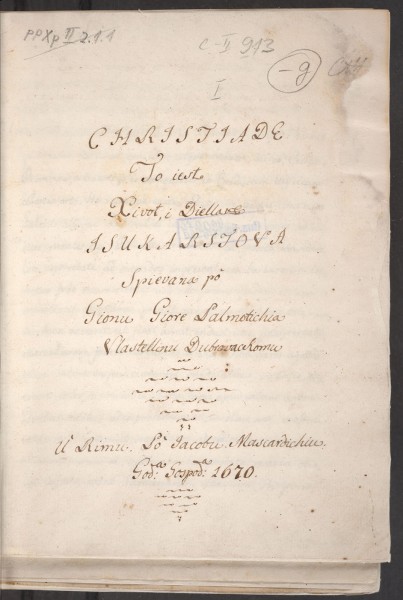 PPXp II 2.1.1
C-II 913
-g
I
CHRISTIADE
To iest
Xivot, i Diella
ISUKARSTOVA
Spievana pò
Gionu Giore Palmotichia
Vlastelinu Dubrovackomu
U Rimu. Pò Jacobu Mascardichiu.
God:a Gospod:a 1670.